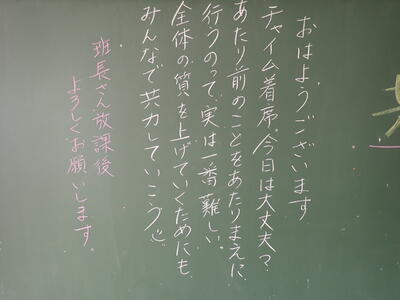 おはようございます
チャイム着席。今日は大丈夫？
あたり前のことをあたりまえに
行うのって、実は一番難しい。
全体の質を上げていくためにも
みんなで共力していこう
班長さん放課後
よろしくお願いします。